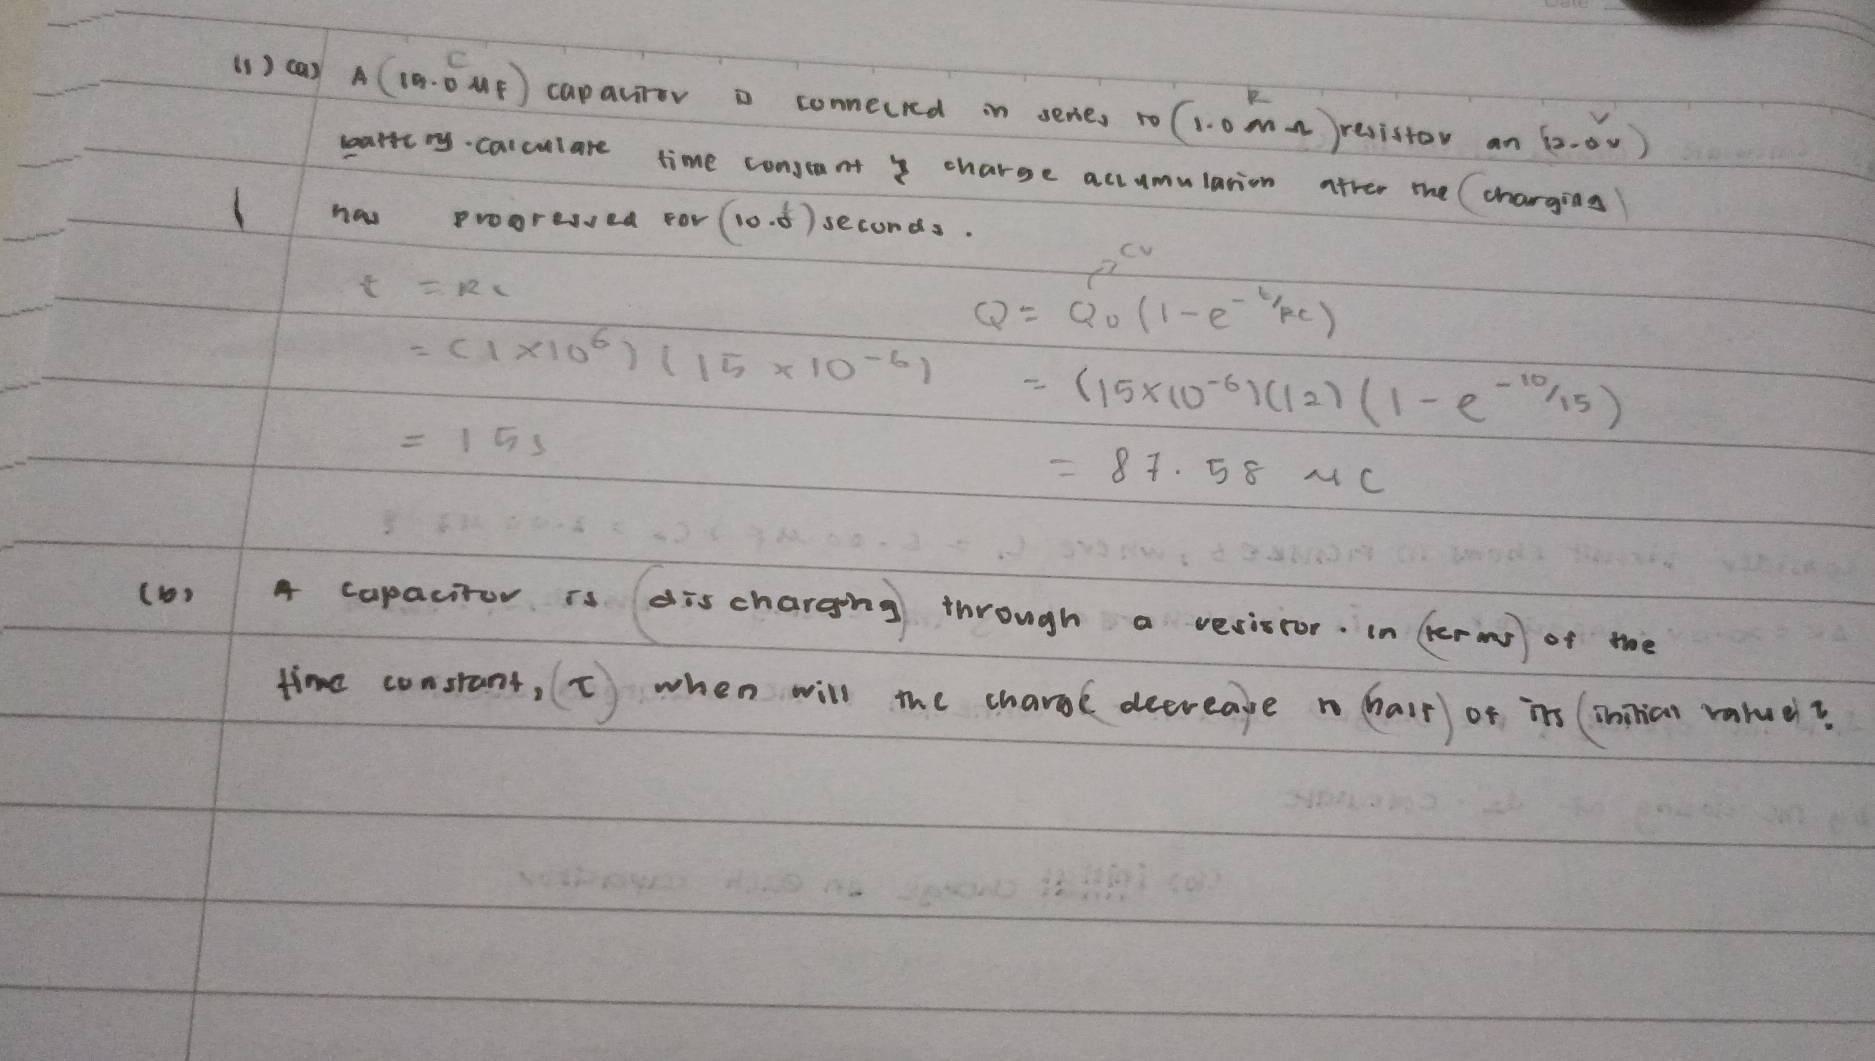 (1) (a) A (15.0 μF) capacitor is connected in series to (1.0 MΩ) resistor an (12.0V)
C R V
battery. calculate time constant & charge accumulation after the (charging)
has progressed for (10.0) seconds.
t
t = RC
= (1×10⁶) (15 × 10⁻⁶)
= 15s
CV
Q = Q₀ (1-e^-t/RC)
= (15×10⁻⁶)(12) (1-e^-10/15)
= 87.58 μC
(b) A capacitor is (discharging) through a resistor. in (terms) of the
time constant, (τ) when will the charge decrease to (half) of its (initial value)?